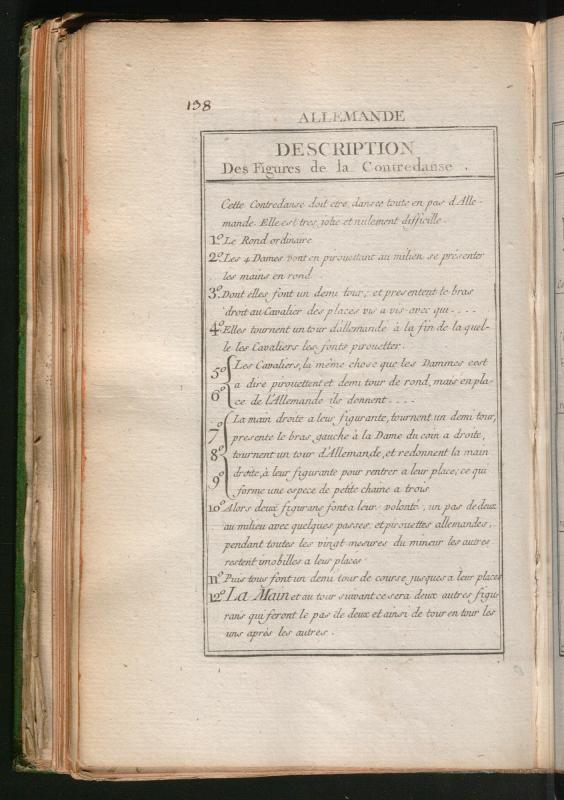 138
ALLEMANDE
DESCRIPTION
Des Figures de la Contredanse .
Cette Contredanse doit etre dansée toute en pas d'Alle-
mande. Elle est tres jolie et nulement difficille.
1.º Le Rond ordinaire
2.º Les 4 Dames vont en pirouettant au milieu se présenter
les mains en rond .
3.º Dont elles font un demi tour, et presentent le bras
droit au Cavalier des places vis a vis avec qui . . . .
4.º Elles tournent un tour d'allemande à la fin de la quel-
le les Cavaliers les fonts pirouetter .
5º Les Cavaliers, la même chose que les Dammes cest
a dire pirouettent et demi tour de rond, mais en pla-
6º ce de l'Allemande ils donnent . . . .
La main droite a leur figurante, tournent un demi tour,
7º presente le bras gauche à la Dame du coin a droite,
8º tournent un tour d'Allemande, et redonnent la main
9º droite, à leur figurante pour rentrer a leur place; ce qui
forme une espece de petite chaine a trois
10º Alors deux figurans font a leur volonté, un pas de deux
au milieu avec quelques passes et pirouettes allemandes,
pendant toutes les vingt mesures du mineur les autres
restent imobilles a leur places
11º Puis tous font un demi tour de course jusques a leur places
12º La Main et au tour suivant ce sera deux autres figu-
rans qui feront le pas de deux et ainsi de tour en tour les
uns après les autres .